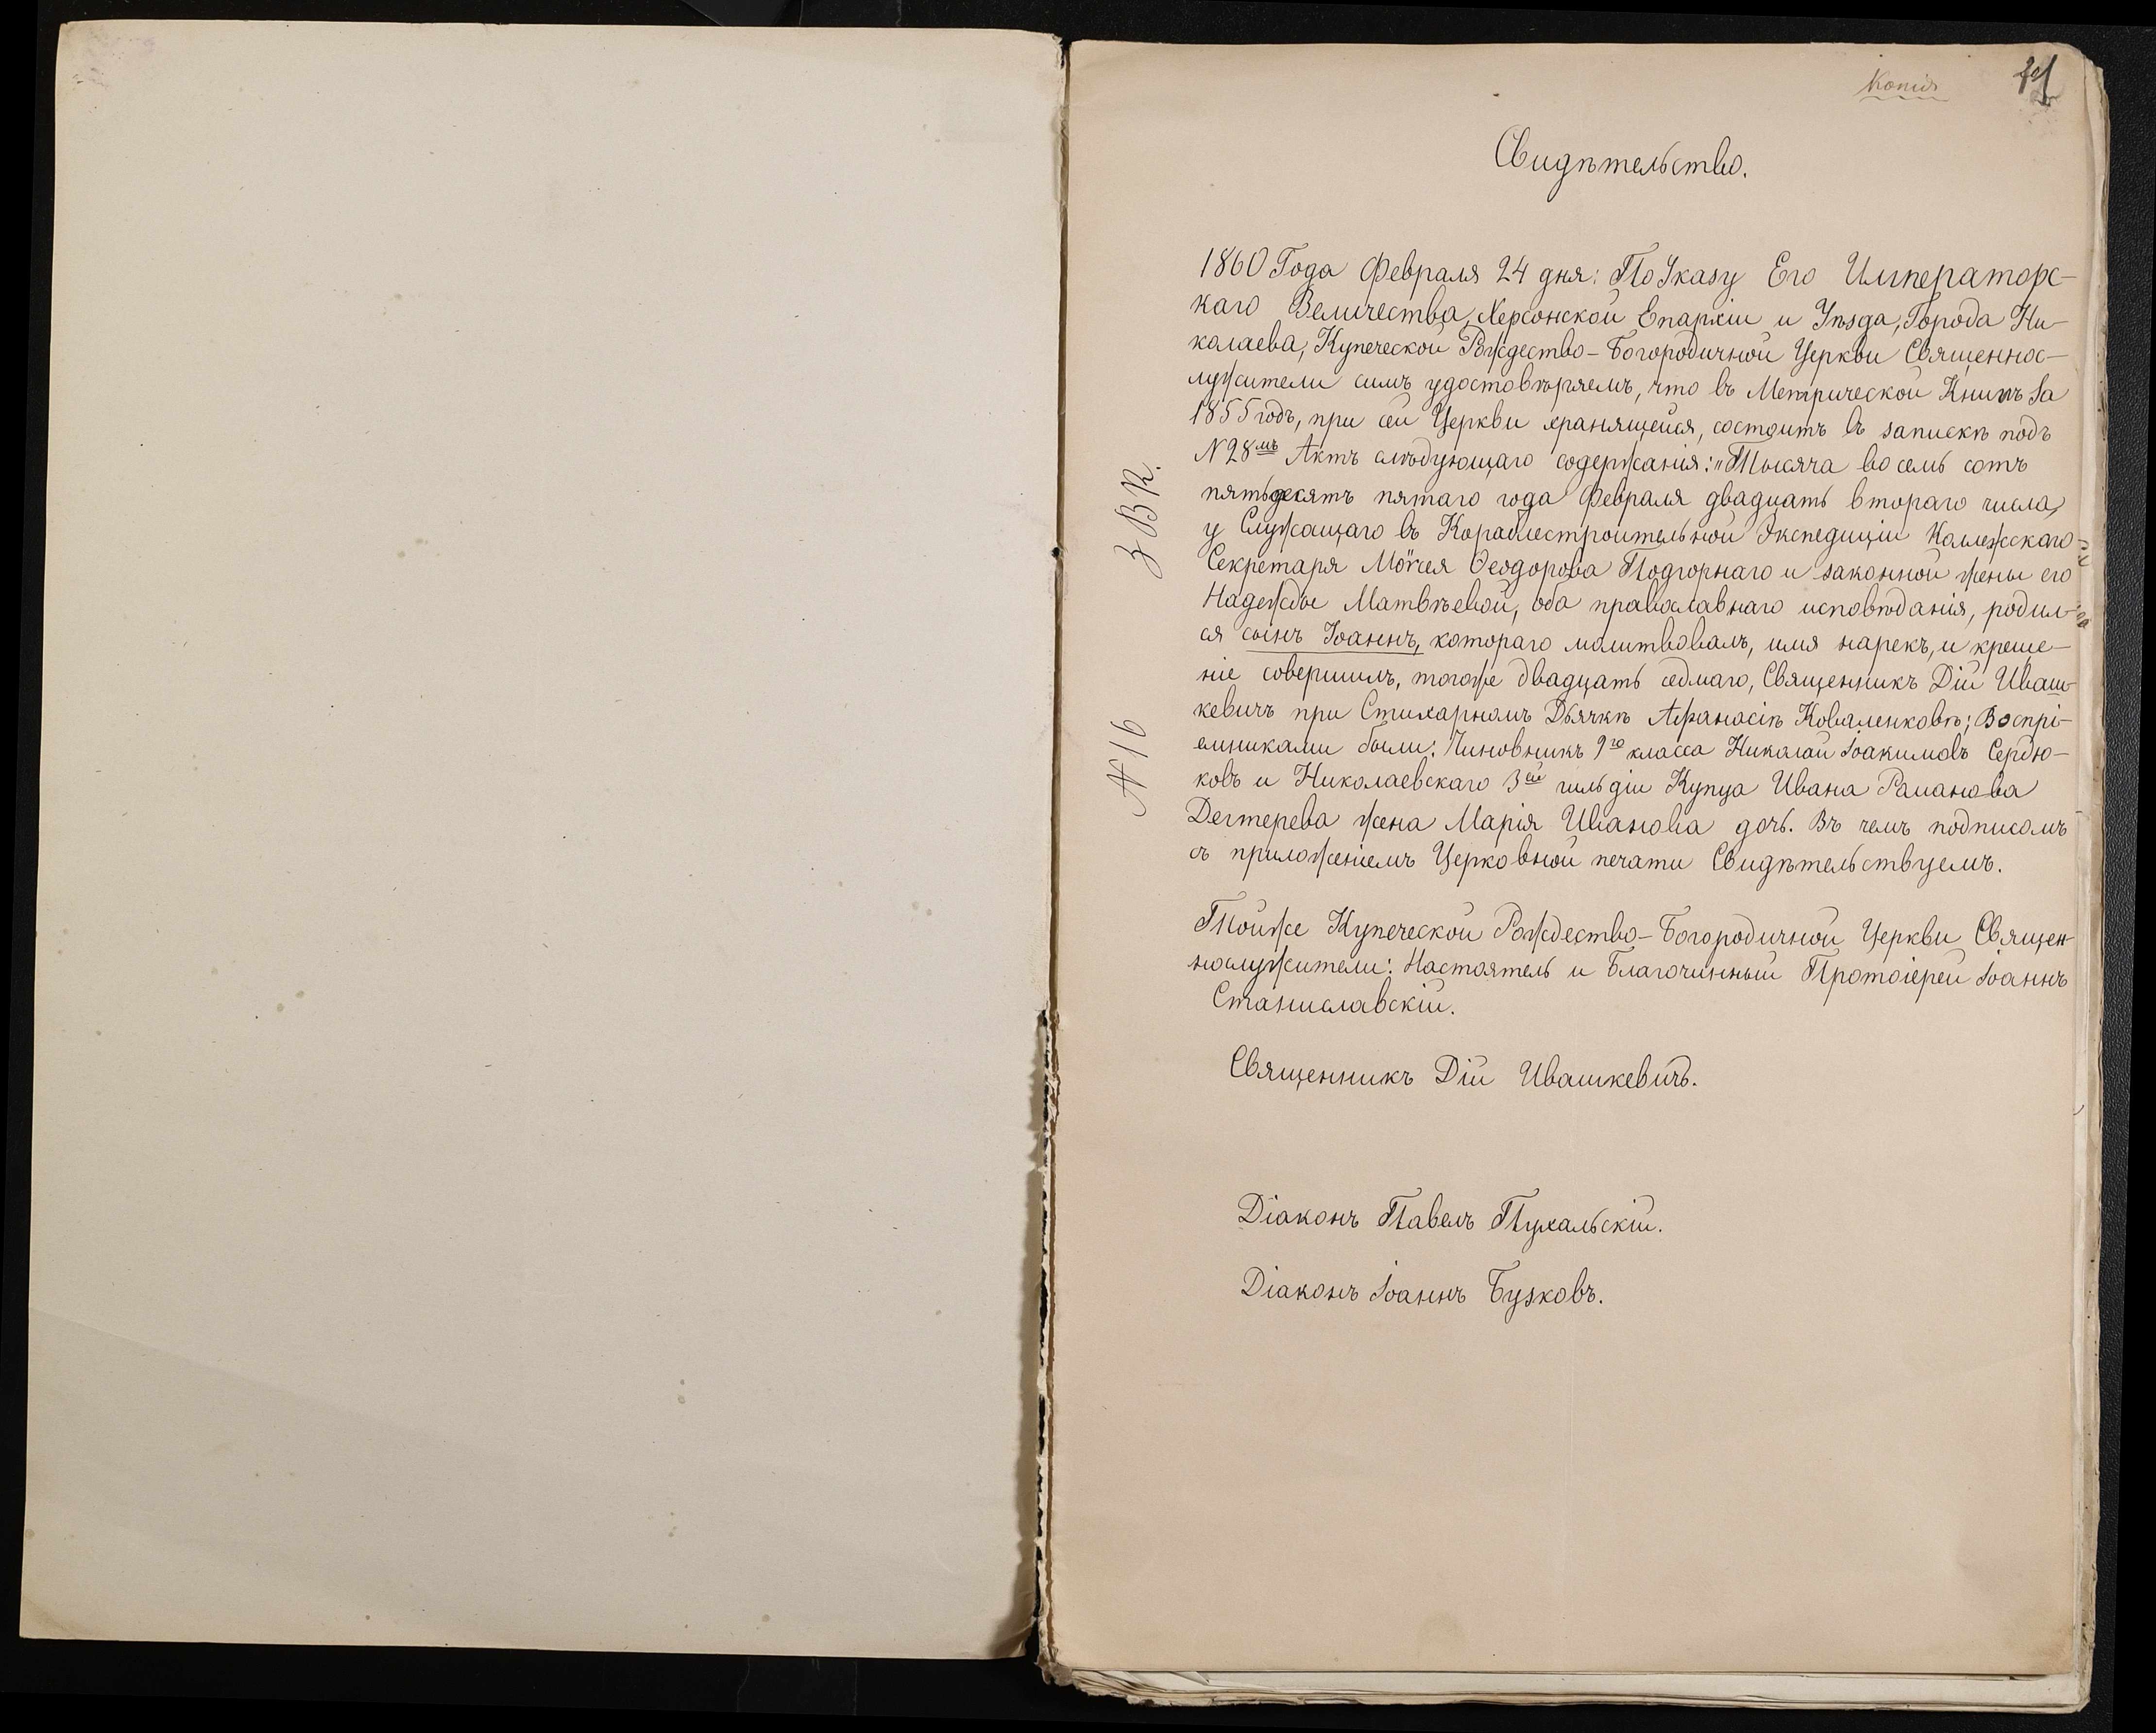 Копія
Свидѣтельство.
1860 Года Февраля 24 дня: По Указу Его Император-
скаго Величества, Херсонской Епархіи и Уѣзда, Города Ни-
колаева, Купеческой Рождество-Богородичной Церкви Священнос-
лужители симъ удостовѣряемъ, что въ Метрической Книгѣ за
1855 годъ, при сей Церкви хранящейся, состоитъ въ запискѣ подъ
N 28мъ Актъ слѣдующаго содержанія: „Тысяча восемь сотъ
пятьдесятъ пятаго года Февраля двадцать втораго числа,
у Служащаго въ Кораблестроительной Экспедиціи Коллежскаго
Секретаря Моѵсея Ѳеодорова Подгорнаго и законной жены его
Надежды Матвѣевой, оба православнаго исповѣданія, родил-
ся сынъ Іоаннъ, котораго молитвовалъ, имя нарекъ, и креще-
ніе совершилъ, тогоже двадцать седмаго, Священникъ Дій Иваш-
кевичъ при Стихарномъ Дьячкѣ Афанасіѣ Коваленковѣ; Воспрі-
емниками были: Чиновникъ 9го класса Николай Іоакимовъ Сердю-
ковъ и Николаевскаго 3ей гильдіи Купца Ивана Романова
Дегтерева жена Марія Иванова дочь. Въ чемъ подписомъ
съ приложеніемъ Церковной печати Свидѣтельствуемъ.
Тойже Купеческой Рождество-Богородичной Церкви Священ-
нослужители: Настоятель и Благочинный Протоіерей Іоаннъ
Станиславскій.
Священникъ Дій Ивашкевичъ.
Діаконъ Павелъ Пухальскій.
Діаконъ Іоаннъ Бузковъ.
З В К.
N 16